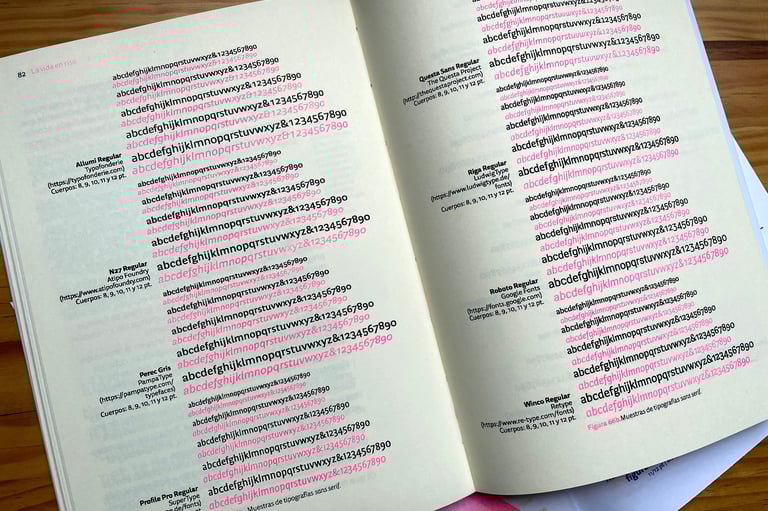 82 La vida en rosa
abcdefghijklmnopqrstuvwxyz&1234567890
abcdefghijklmnopqrstuvwxyz&1234567890
abcdefghijklmnopqrstuvwxyz&1234567890
abcdefghijklmnopqrstuvwxyz&1234567890
abcdefghijklmnopqrstuvwxyz&1234567890
abcdefghijklmnopqrstuvwxyz&1234567890
abcdefghijklmnopqrstuvwxyz&1234567890
abcdefghijklmnopqrstuvwxyz&1234567890
abcdefghijklmnopqrstuvwxyz&1234567890
abcdefghijklmnopqrstuvwxyz&1234567890
Allumi Regular
Typofonderie
(https://typofonderie.com)
Cuerpos: 8, 9, 10, 11 y 12 pt.
abcdefghijklmnopqrstuvwxyz&1234567890
abcdefghijklmnopqrstuvwxyz&1234567890
abcdefghijklmnopqrstuvwxyz&1234567890
abcdefghijklmnopqrstuvwxyz&1234567890
abcdefghijklmnopqrstuvwxyz&1234567890
abcdefghijklmnopqrstuvwxyz&1234567890
abcdefghijklmnopqrstuvwxyz&1234567890
abcdefghijklmnopqrstuvwxyz&1234567890
abcdefghijklmnopqrstuvwxyz&1234567890
abcdefghijklmnopqrstuvwxyz&1234567890
N27 Regular
Atipo Foundry
(https://www.atipofoundry.com)
Cuerpos: 8, 9, 10, 11 y 12 pt.
abcdefghijklmnopqrstuvwxyz&1234567890
abcdefghijklmnopqrstuvwxyz&1234567890
abcdefghijklmnopqrstuvwxyz&1234567890
abcdefghijklmnopqrstuvwxyz&1234567890
abcdefghijklmnopqrstuvwxyz&1234567890
abcdefghijklmnopqrstuvwxyz&1234567890
abcdefghijklmnopqrstuvwxyz&1234567890
abcdefghijklmnopqrstuvwxyz&1234567890
abcdefghijklmnopqrstuvwxyz&1234567890
abcdefghijklmnopqrstuvwxyz&1234567890
Perec Gris
PampaType
(https://pampatype.com/
typefaces)
Cuerpos: 8, 9, 10, 11 y 12 pt.
abcdefghijklmnopqrstuvwxyz&1234567890
abcdefghijklmnopqrstuvwxyz&1234567890
abcdefghijklmnopqrstuvwxyz&1234567890
abcdefghijklmnopqrstuvwxyz&1234567890
abcdefghijklmnopqrstuvwxyz&1234567890
abcdefghijklmnopqrstuvwxyz&1234567890
abcdefghijklmnopqrstuvwxyz&1234567890
abcdefghijklmnopqrstuvwxyz&1234567890
abcdefghijklmnopqrstuvwxyz&1234567890
abcdefghijklmnopqrstuvwxyz&1234567890
Profile Pro Regular
SuperType
Muestras de tipografías sans serif.
abcdefghijklmnopqrstuvwxyz&1234567890
abcdefghijklmnopqrstuvwxyz&1234567890
abcdefghijklmnopqrstuvwxyz&1234567890
abcdefghijklmnopqrstuvwxyz&1234567890
abcdefghijklmnopqrstuvwxyz&1234567890
abcdefghijklmnopqrstuvwxyz&1234567890
Questa Sans Regular
The Questa Project
(http://thequestaproject.com)
Cuerpos: 8, 9, 10, 11 y 12 pt.
abcdefghijklmnopqrstuvwxyz&1234567890
abcdefghijklmnopqrstuvwxyz&1234567890
abcdefghijklmnopqrstuvwxyz&1234567890
abcdefghijklmnopqrstuvwxyz&1234567890
abcdefghijklmnopqrstuvwxyz&1234567890
abcdefghijklmnopqrstuvwxyz&1234567890
abcdefghijklmnopqrstuvwxyz&1234567890
abcdefghijklmnopqrstuvwxyz&1234567890
abcdefghijklmnopqrstuvwxyz&1234567890
abcdefghijklmnopqrstuvwxyz&1234567890
Riga Regular
LudwigType
(https://www.ludwigtype.de/
fonts)
Cuerpos: 8, 9, 10, 11 y 12 pt.
abcdefghijklmnopqrstuvwxyz&1234567890
abcdefghijklmnopqrstuvwxyz&1234567890
abcdefghijklmnopqrstuvwxyz&1234567890
abcdefghijklmnopqrstuvwxyz&1234567890
abcdefghijklmnopqrstuvwxyz&1234567890
abcdefghijklmnopqrstuvwxyz&1234567890
abcdefghijklmnopqrstuvwxyz&1234567890
abcdefghijklmnopqrstuvwxyz&1234567890
abcdefghijklmnopqrstuvwxyz&1234567890
abcdefghijklmnopqrstuvwxyz&1234567890
Roboto Regular
Google Fonts
(https://fonts.google.com)
Cuerpos: 8, 9, 10, 11 y 12 pt.
abcdefghijklmnopqrstuvwxyz&1234567890
abcdefghijklmnopqrstuvwxyz&1234567890
abcdefghijklmnopqrstuvwxyz&1234567890
abcdefghijklmnopqrstuvwxyz&1234567890
abcdefghijklmnopqrstuvwxyz&1234567890
abcdefghijklmnopqrstuvwxyz&1234567890
abcdefghijklmnopqrstuvwxyz&1234567890
abcdefghijklmnopqrstuvwxyz&1234567890
abcdefghijklmnopqrstuvwxyz&1234567890
abcdefghijklmnopqrstuvwxyz&1234567890
Winco Regular
Retype
(https://www.re-type.com/fonts)
Cuerpos: 8, 9, 10, 11 y 12 pt.
Figura 66b. Muestras de tipografías sans serif.